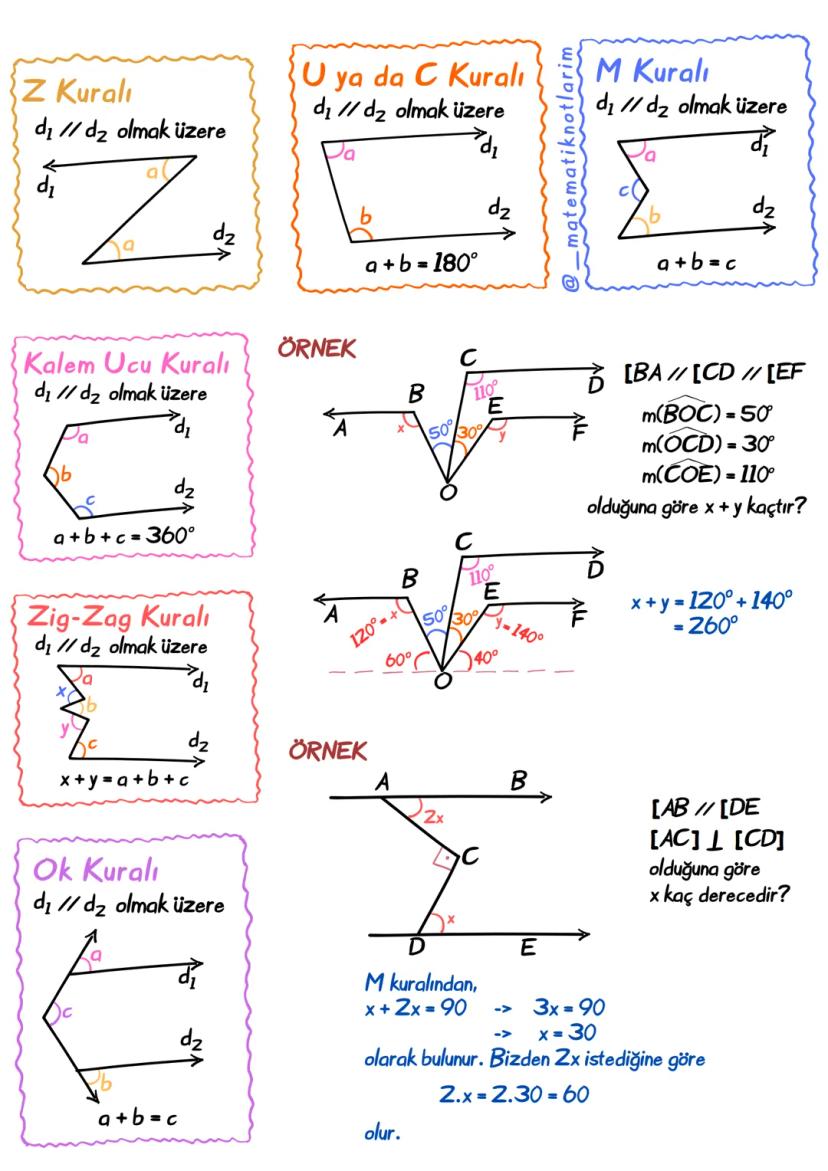 Z Kuralı
d₁ // d₂ olmak üzere
a
d₁
a
d₂
U ya da C Kuralı
d₁ // d₂ olmak üzere
a
d₁
b
d₂
a + b = 180°
@__matematiknotlarim
M Kuralı
d₁ // d₂ olmak üzere
a
d₁
c
b
d₂
a + b = c
Kalem Ucu Kuralı
d₁ // d₂ olmak üzere
a
d₁
b
c
d₂
a + b + c = 360°
ÖRNEK
C
110°
D
B
E
A
x
50°
30°
y
F
O
[BA // [CD // [EF
m(BOC) = 50°
m(OCD) = 30°
m(COE) = 110°
olduğuna göre x + y kaçtır?
C
110°
D
B
E
A
120° = x
50°
30°
y = 140°
F
60°
40°
O
x + y = 120° + 140°
= 260°
Zig-Zag Kuralı
d₁ // d₂ olmak üzere
a
d₁
x
b
y
c
d₂
x + y = a + b + c
ÖRNEK
A
B
2x
C
x
D
E
[AB // [DE
[AC] ⊥ [CD]
olduğuna göre
x kaç derecedir?
M kuralından,
x + 2x = 90 -> 3x = 90
-> x = 30
olarak bulunur. Bizden 2x istediğine göre
2.x = 2.30 = 60
olur.
Ok Kuralı
d₁ // d₂ olmak üzere
a
d₁
c
d₂
b
a + b = c